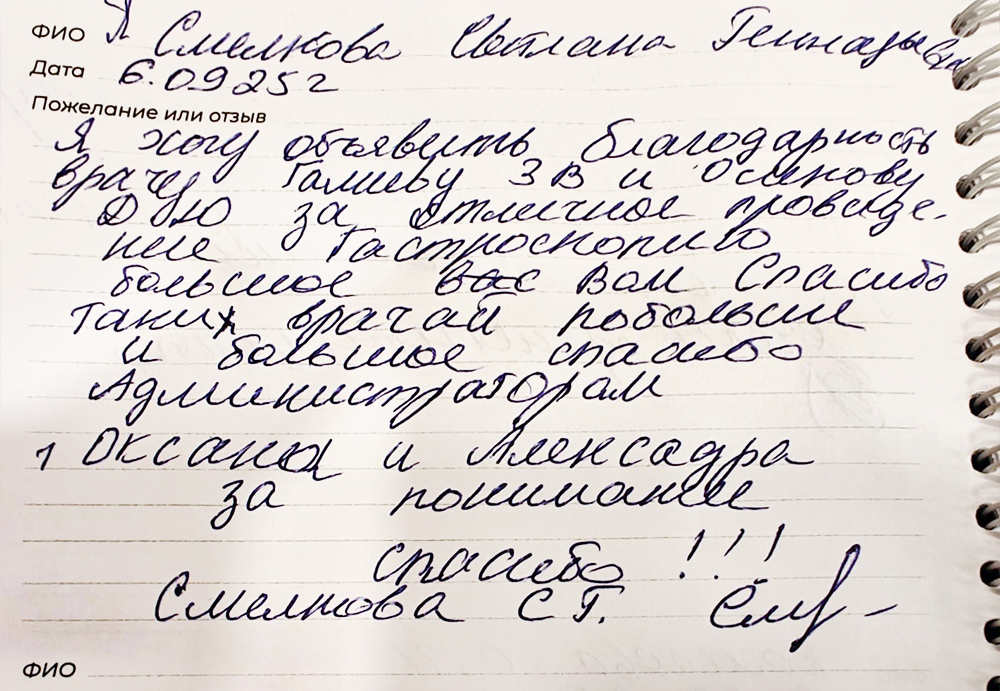 ФИО Я Смелкова Светлана Геннадьевна
Дата 6.09 25 г
Пожелание или отзыв
Я хочу объявить благодарность
врачу Галиеву З В и Осинову
Д Ю за отличное проведе-
ние Гастроскопию
большое вас Вам Спасибо
таких врачай побольше
и большое спасибо
Администраторам
1 Оксана и Алексадра
за понимание
спасибо !!!
Смелкова С Г.
ФИО